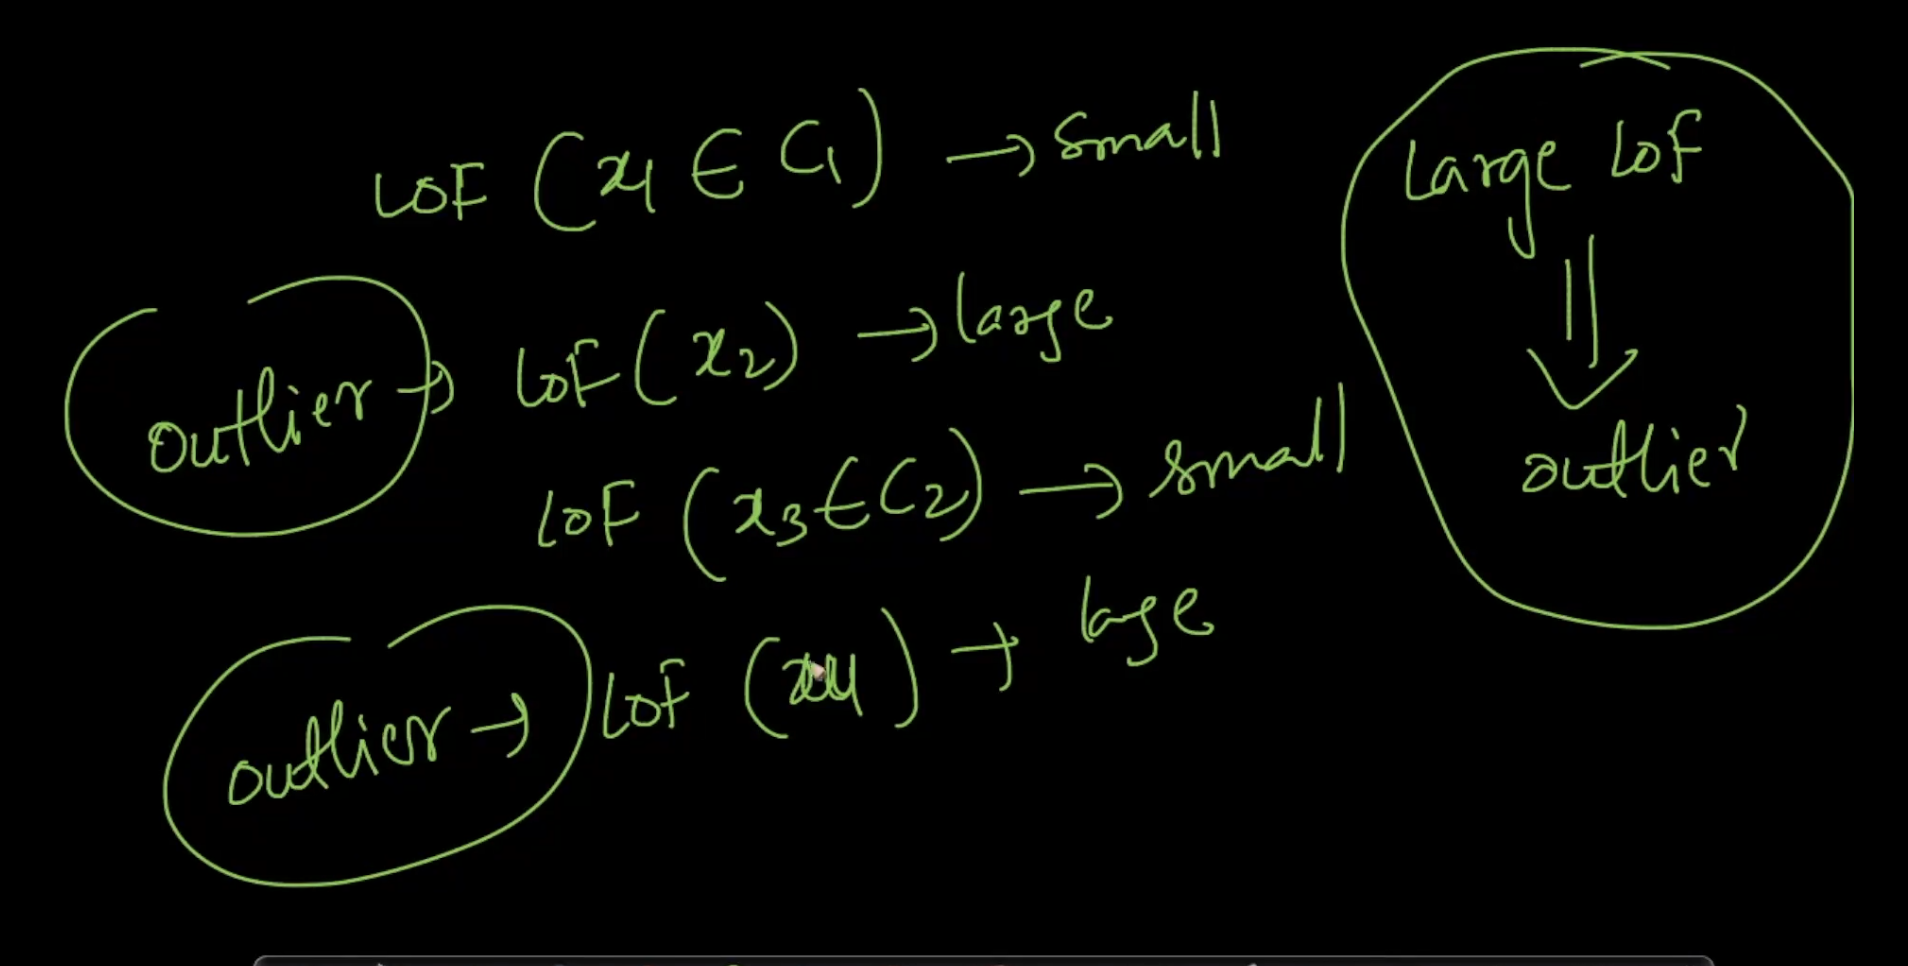 LOF (x1 ∈ C1) → small
outlier → LOF (x2) → large
LOF (x3 ∈ C2) → small
outlier → LOF (x4) → lage
Large LOF
⇓
outlier